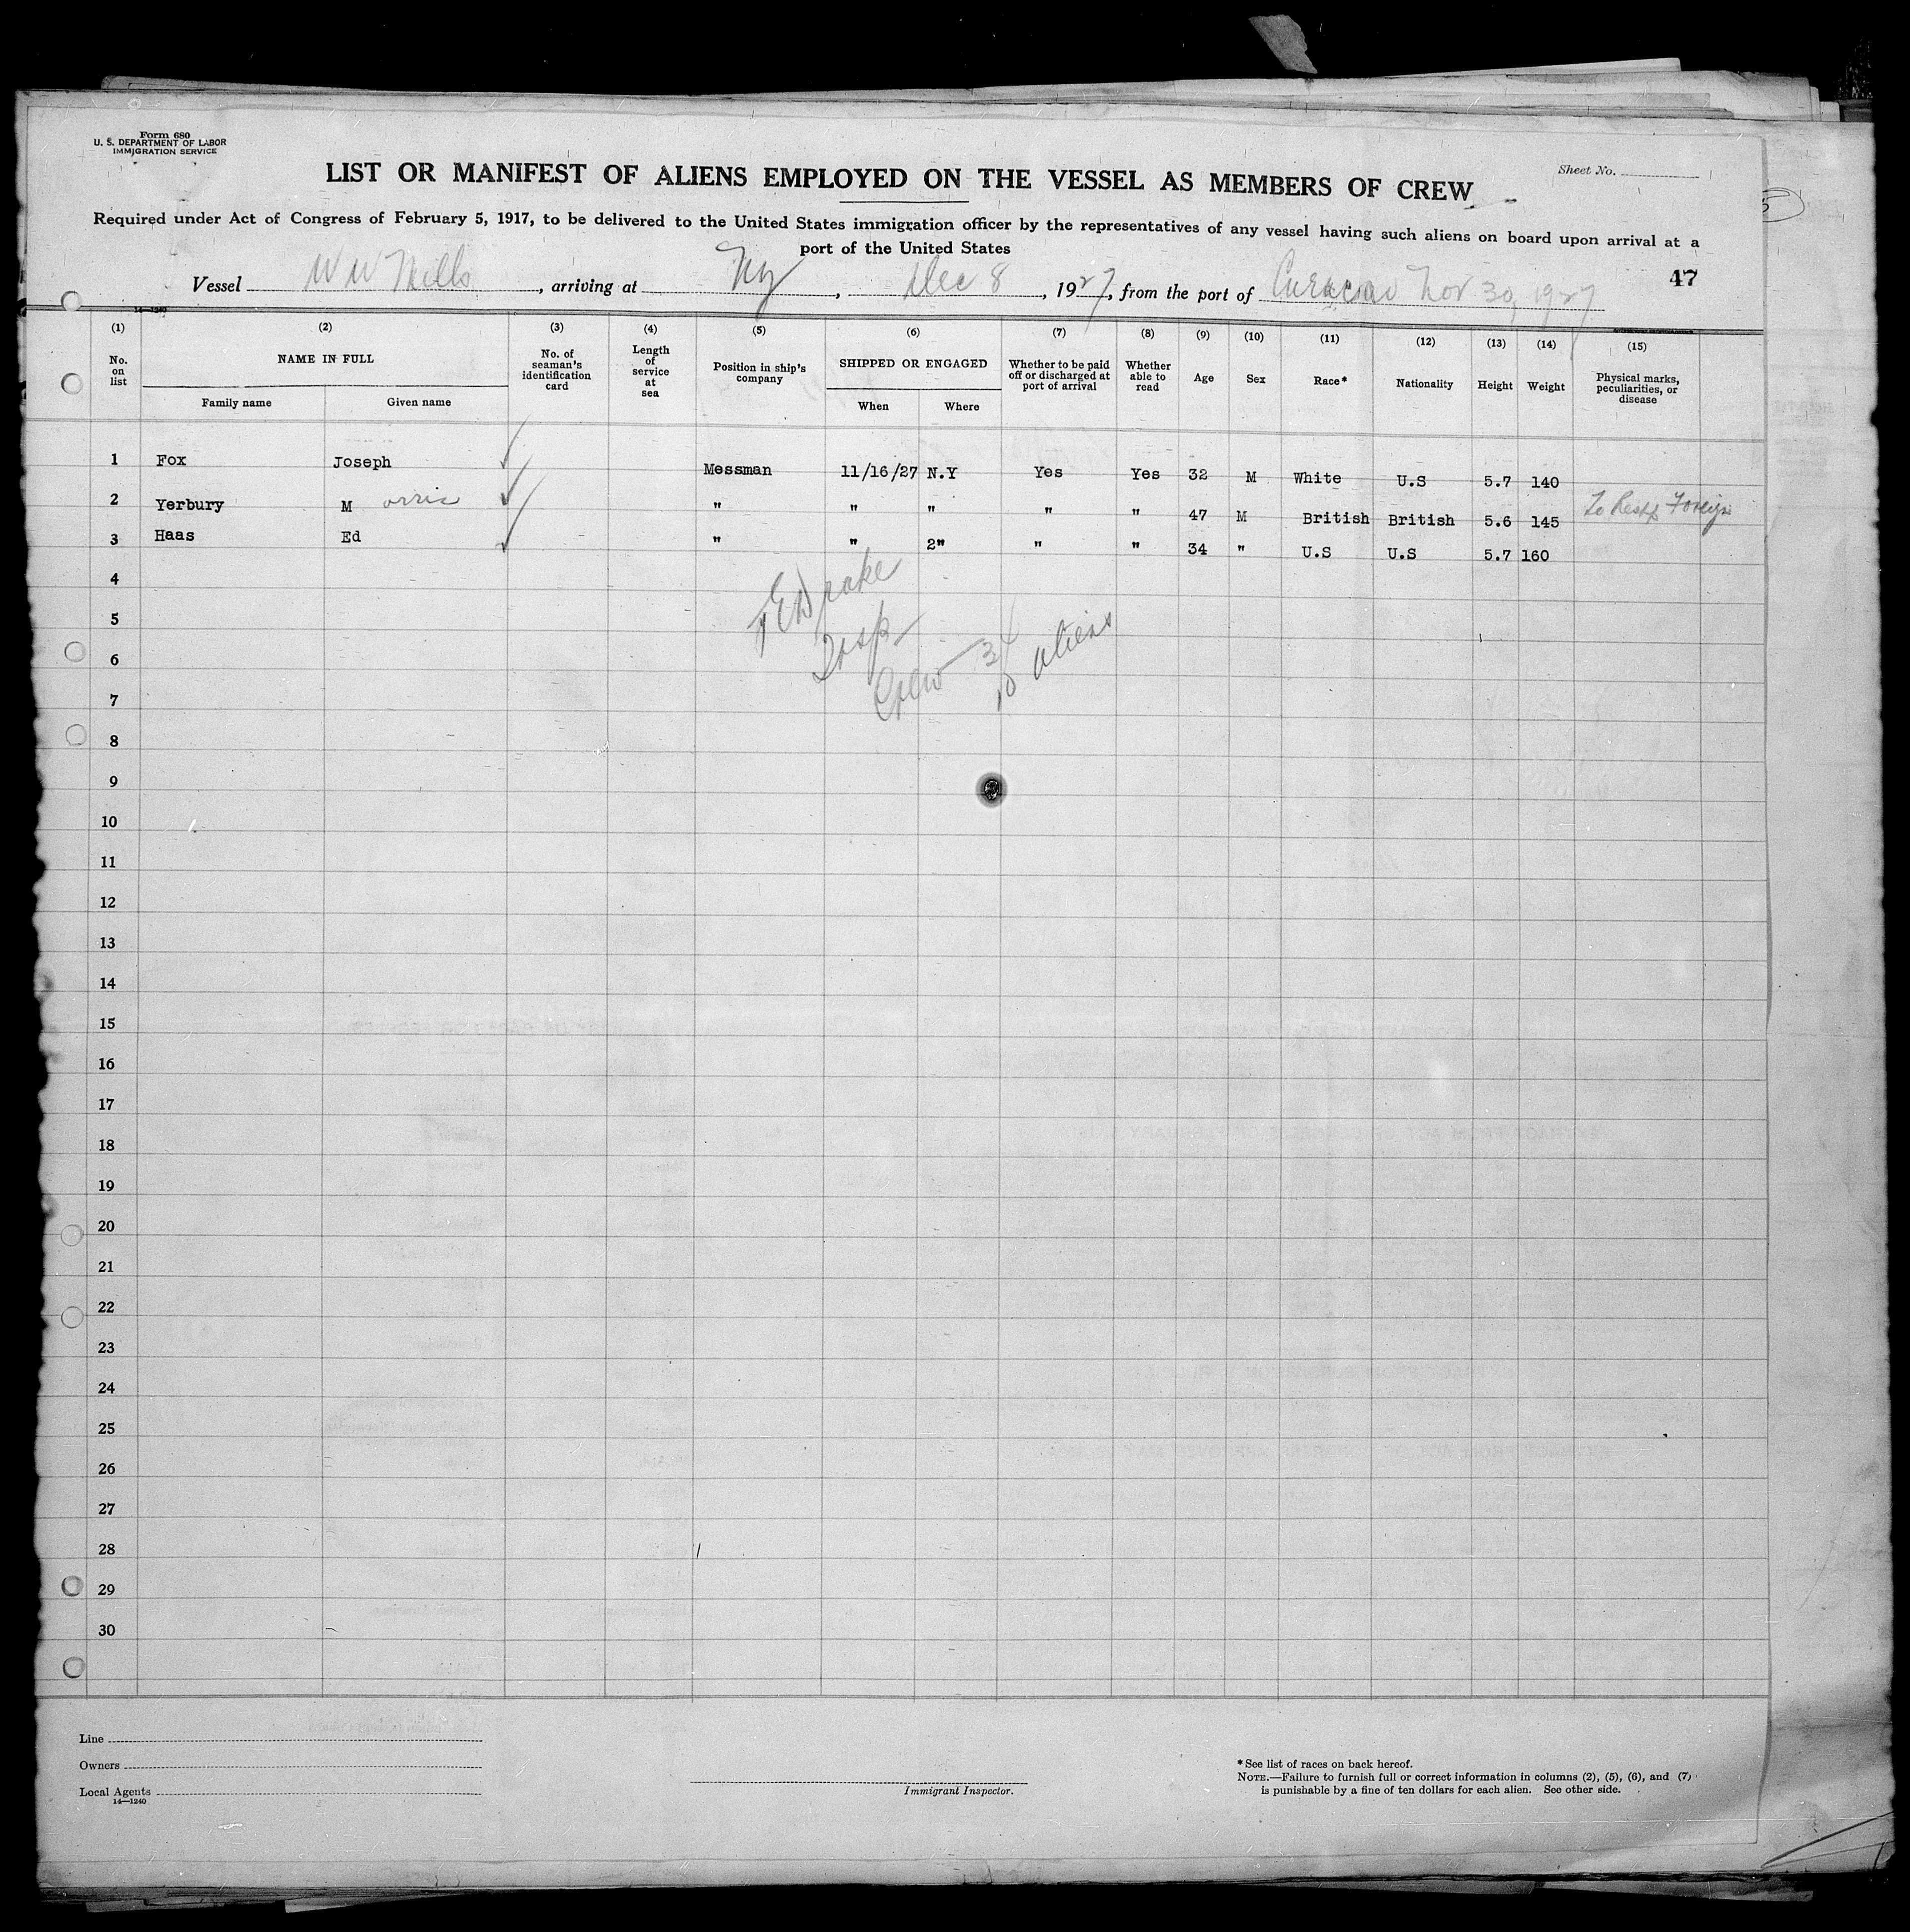 Form 680
U. S. DEPARTMENT OF LABOR
IMMIGRATION SERVICE
Sheet No.
LIST OR MANIFEST OF ALIENS EMPLOYED ON THE VESSEL AS MEMBERS OF CREW
Required under Act of Congress of February 5, 1917, to be delivered to the United States immigration officer by the representatives of any vessel having such aliens on board upon arrival at a
port of the United States
47
Vessel W W Mills, arriving at Ny, Dec 8, 1927, from the port of Curacao Nov 30, 1927
14—1240
(1) (2) (3) (4) (5) (6) (7) (8) (9) (10) (11) (12) (13) (14) (15)
No. on list NAME IN FULL Family name Given name No. of seaman's identification card Length of service at sea Position in ship's company SHIPPED OR ENGAGED When Where Whether to be paid off or discharged at port of arrival Whether able to read Age Sex Race* Nationality Height Weight Physical marks, peculiarities, or disease
1 Fox Joseph Messman 11/16/27 N.Y Yes Yes 32 M White U.S 5.7 140
2 Yerbury M orris " " " " " 47 M British British 5.6 145 To Foreign
3 Haas Ed " " 2" " " 34 " U.S U.S 5.7 160
4
5
6
7
8
9
10
11
12
13
14
15
16
17
18
19
20
21
22
23
24
25
26
27
28
29
30
Drake
Insp
Crew 34
10 aliens
Line
Owners
Local Agents
14—1240
Immigrant Inspector.
* See list of races on back hereof.
NOTE.—Failure to furnish full or correct information in columns (2), (5), (6), and (7)
is punishable by a fine of ten dollars for each alien. See other side.